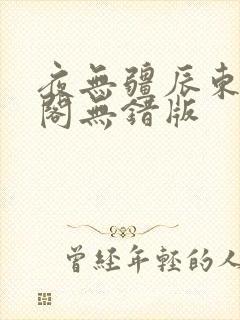 夜無疆辰東
閣無錯版
曾經年輕的人